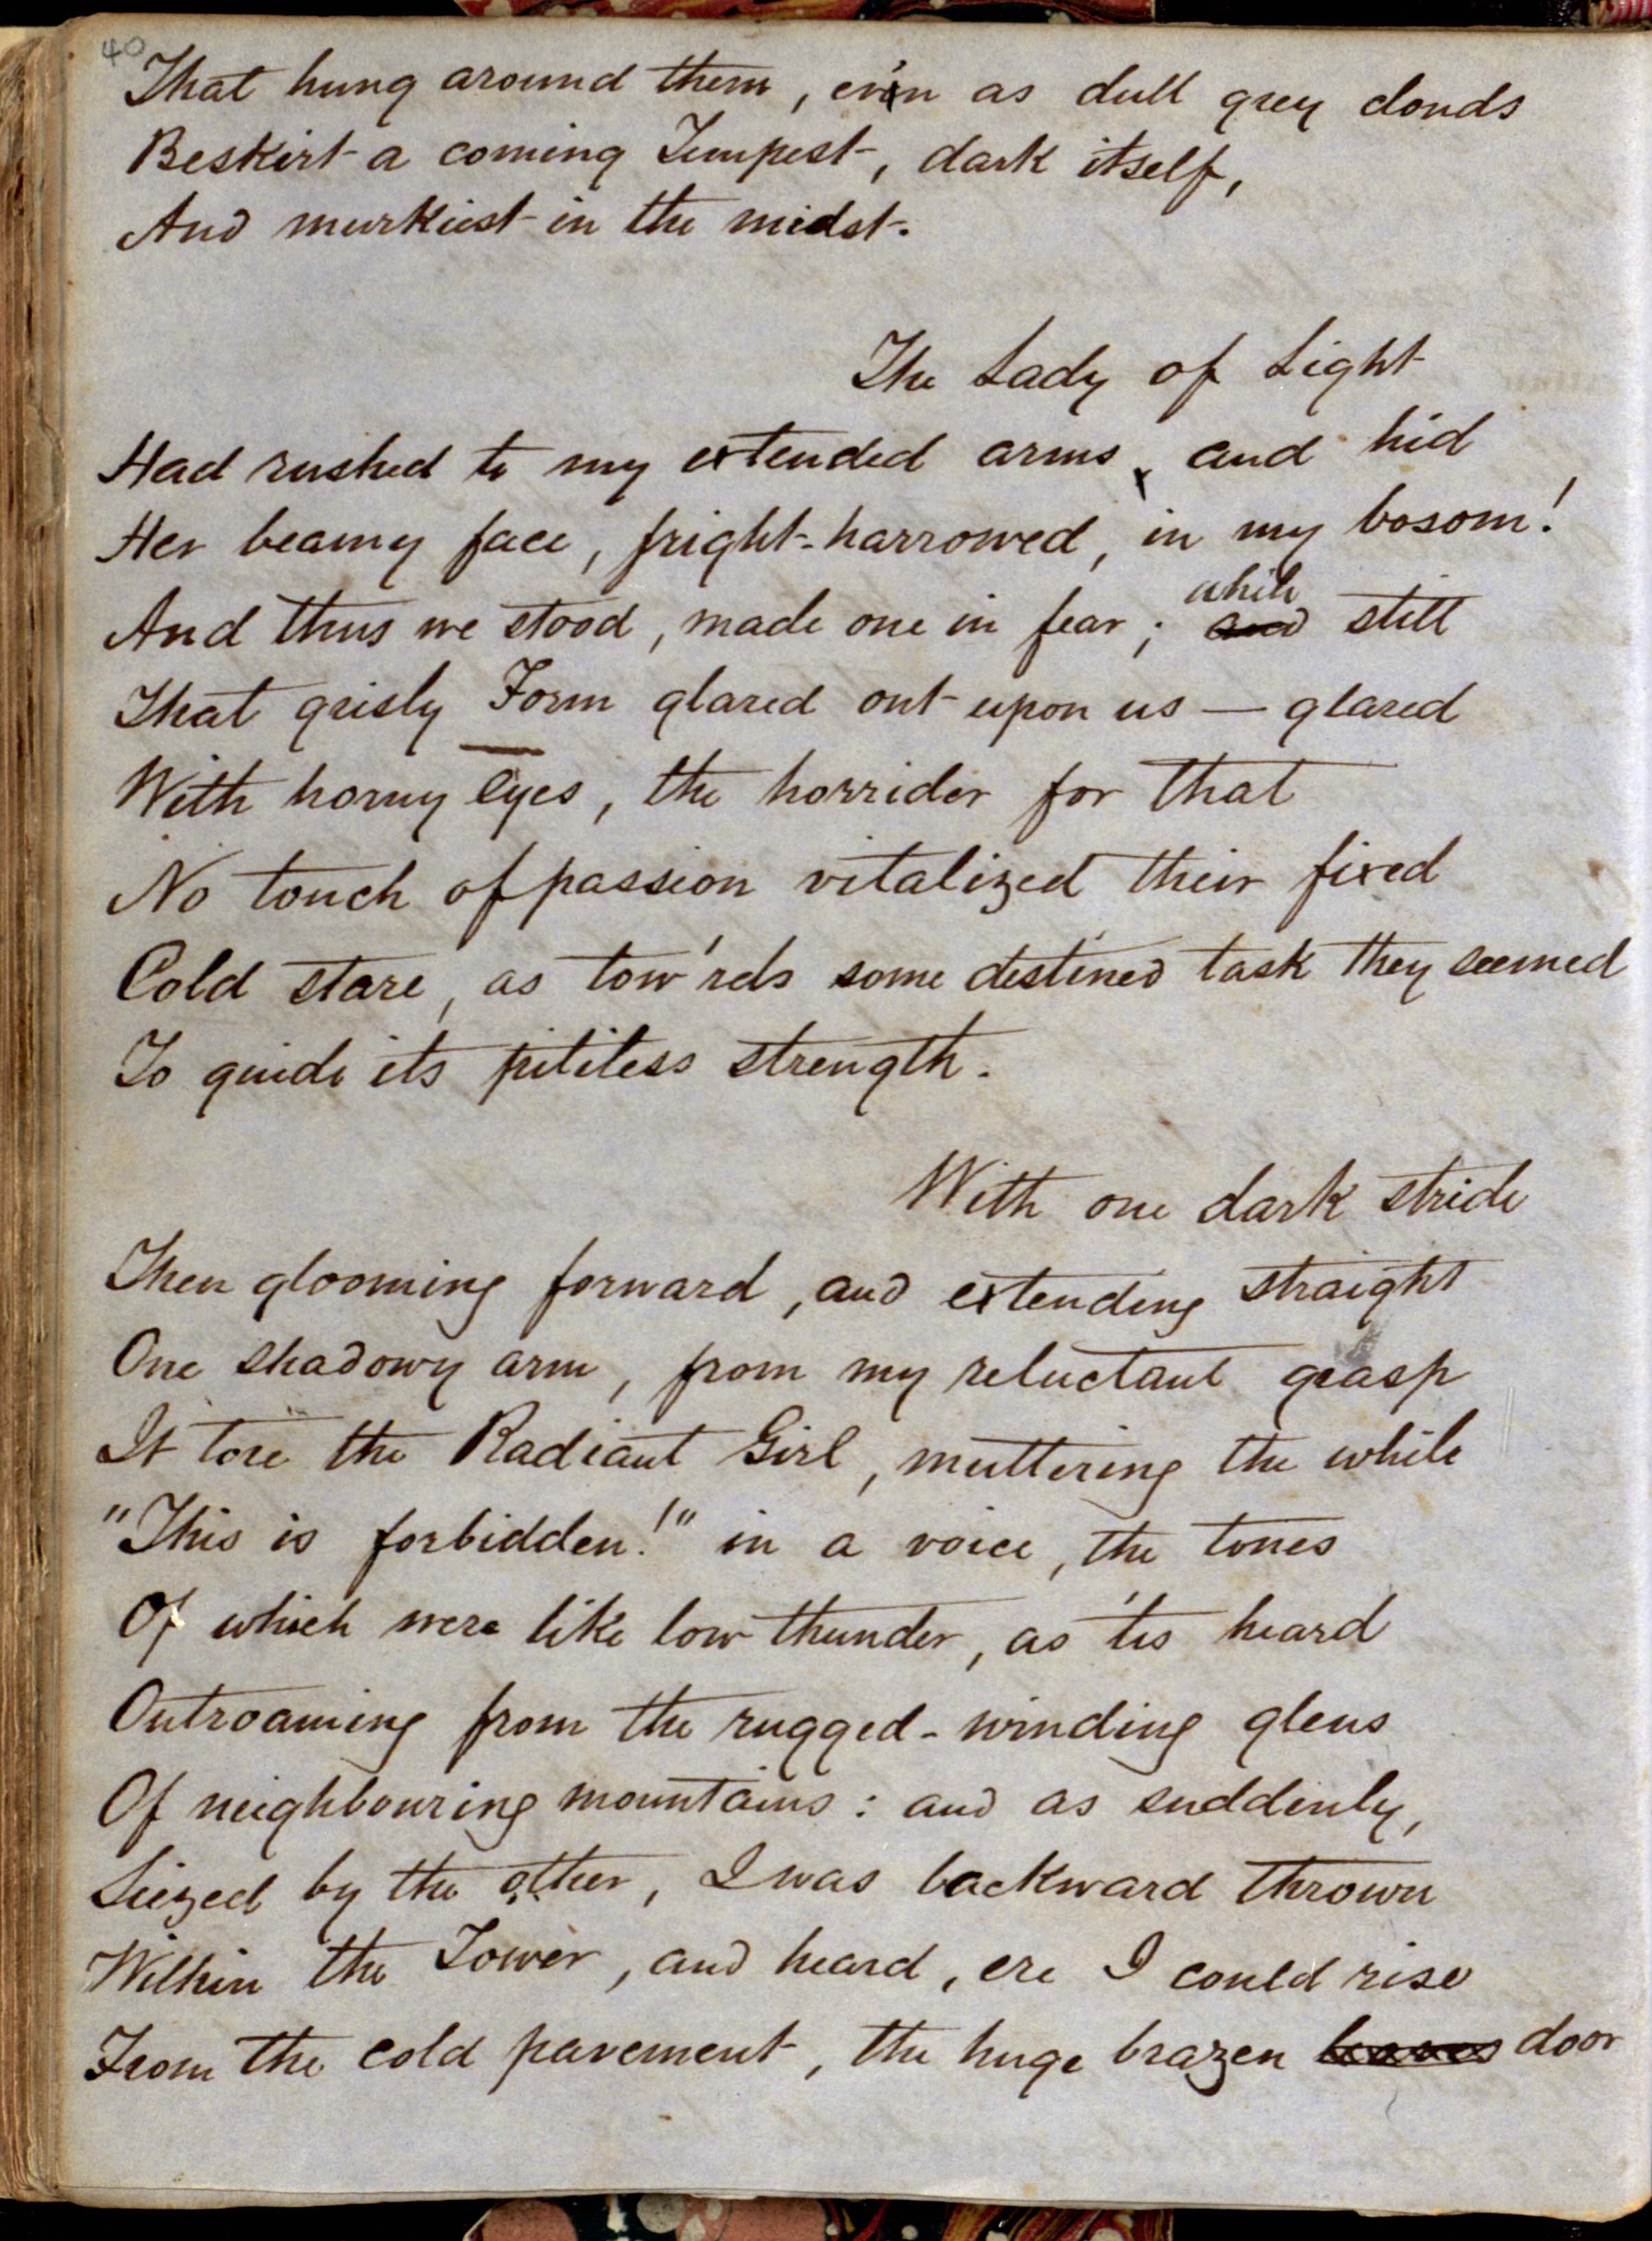 40
That hung around them, ev'n as dull grey clouds
Beskirt a coming Tempest, dark itself,
And murkiest in the midst.
The Lady of Light
Had rushed to my extended arms, and hid
Her beamy face, fright-harrowed, in my bosom!
while
And thus we stood, made one in fear; and still
That grisly Form glared out upon us — glared
With horny eyes, the horrider for that
No touch of passion vitalized their fixed
Cold stare, as tow'rds some destined task they seemed
To guide its pitiless strength.
With one dark stride
Then glooming forward, and extending straight
One shadowy arm, from my reluctant grasp
It tore the Radiant Girl, muttering the while
"This is forbidden!" in a voice, the tones
Of which were like low thunder, as 'tis heard
Outroaming from the rugged-winding glens
Of neighbouring mountains: and as suddenly,
Siezed by the other, I was backward thrown
Within the Tower, and heard, ere I could rise
From the cold pavement, the huge brazen leaves door